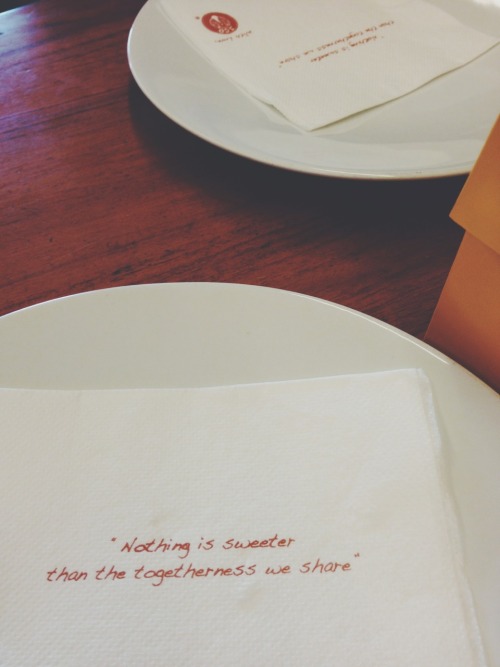 with love,
"Nothing is sweeter
than the togetherness we share"
"Nothing is sweeter
than the togetherness we share"